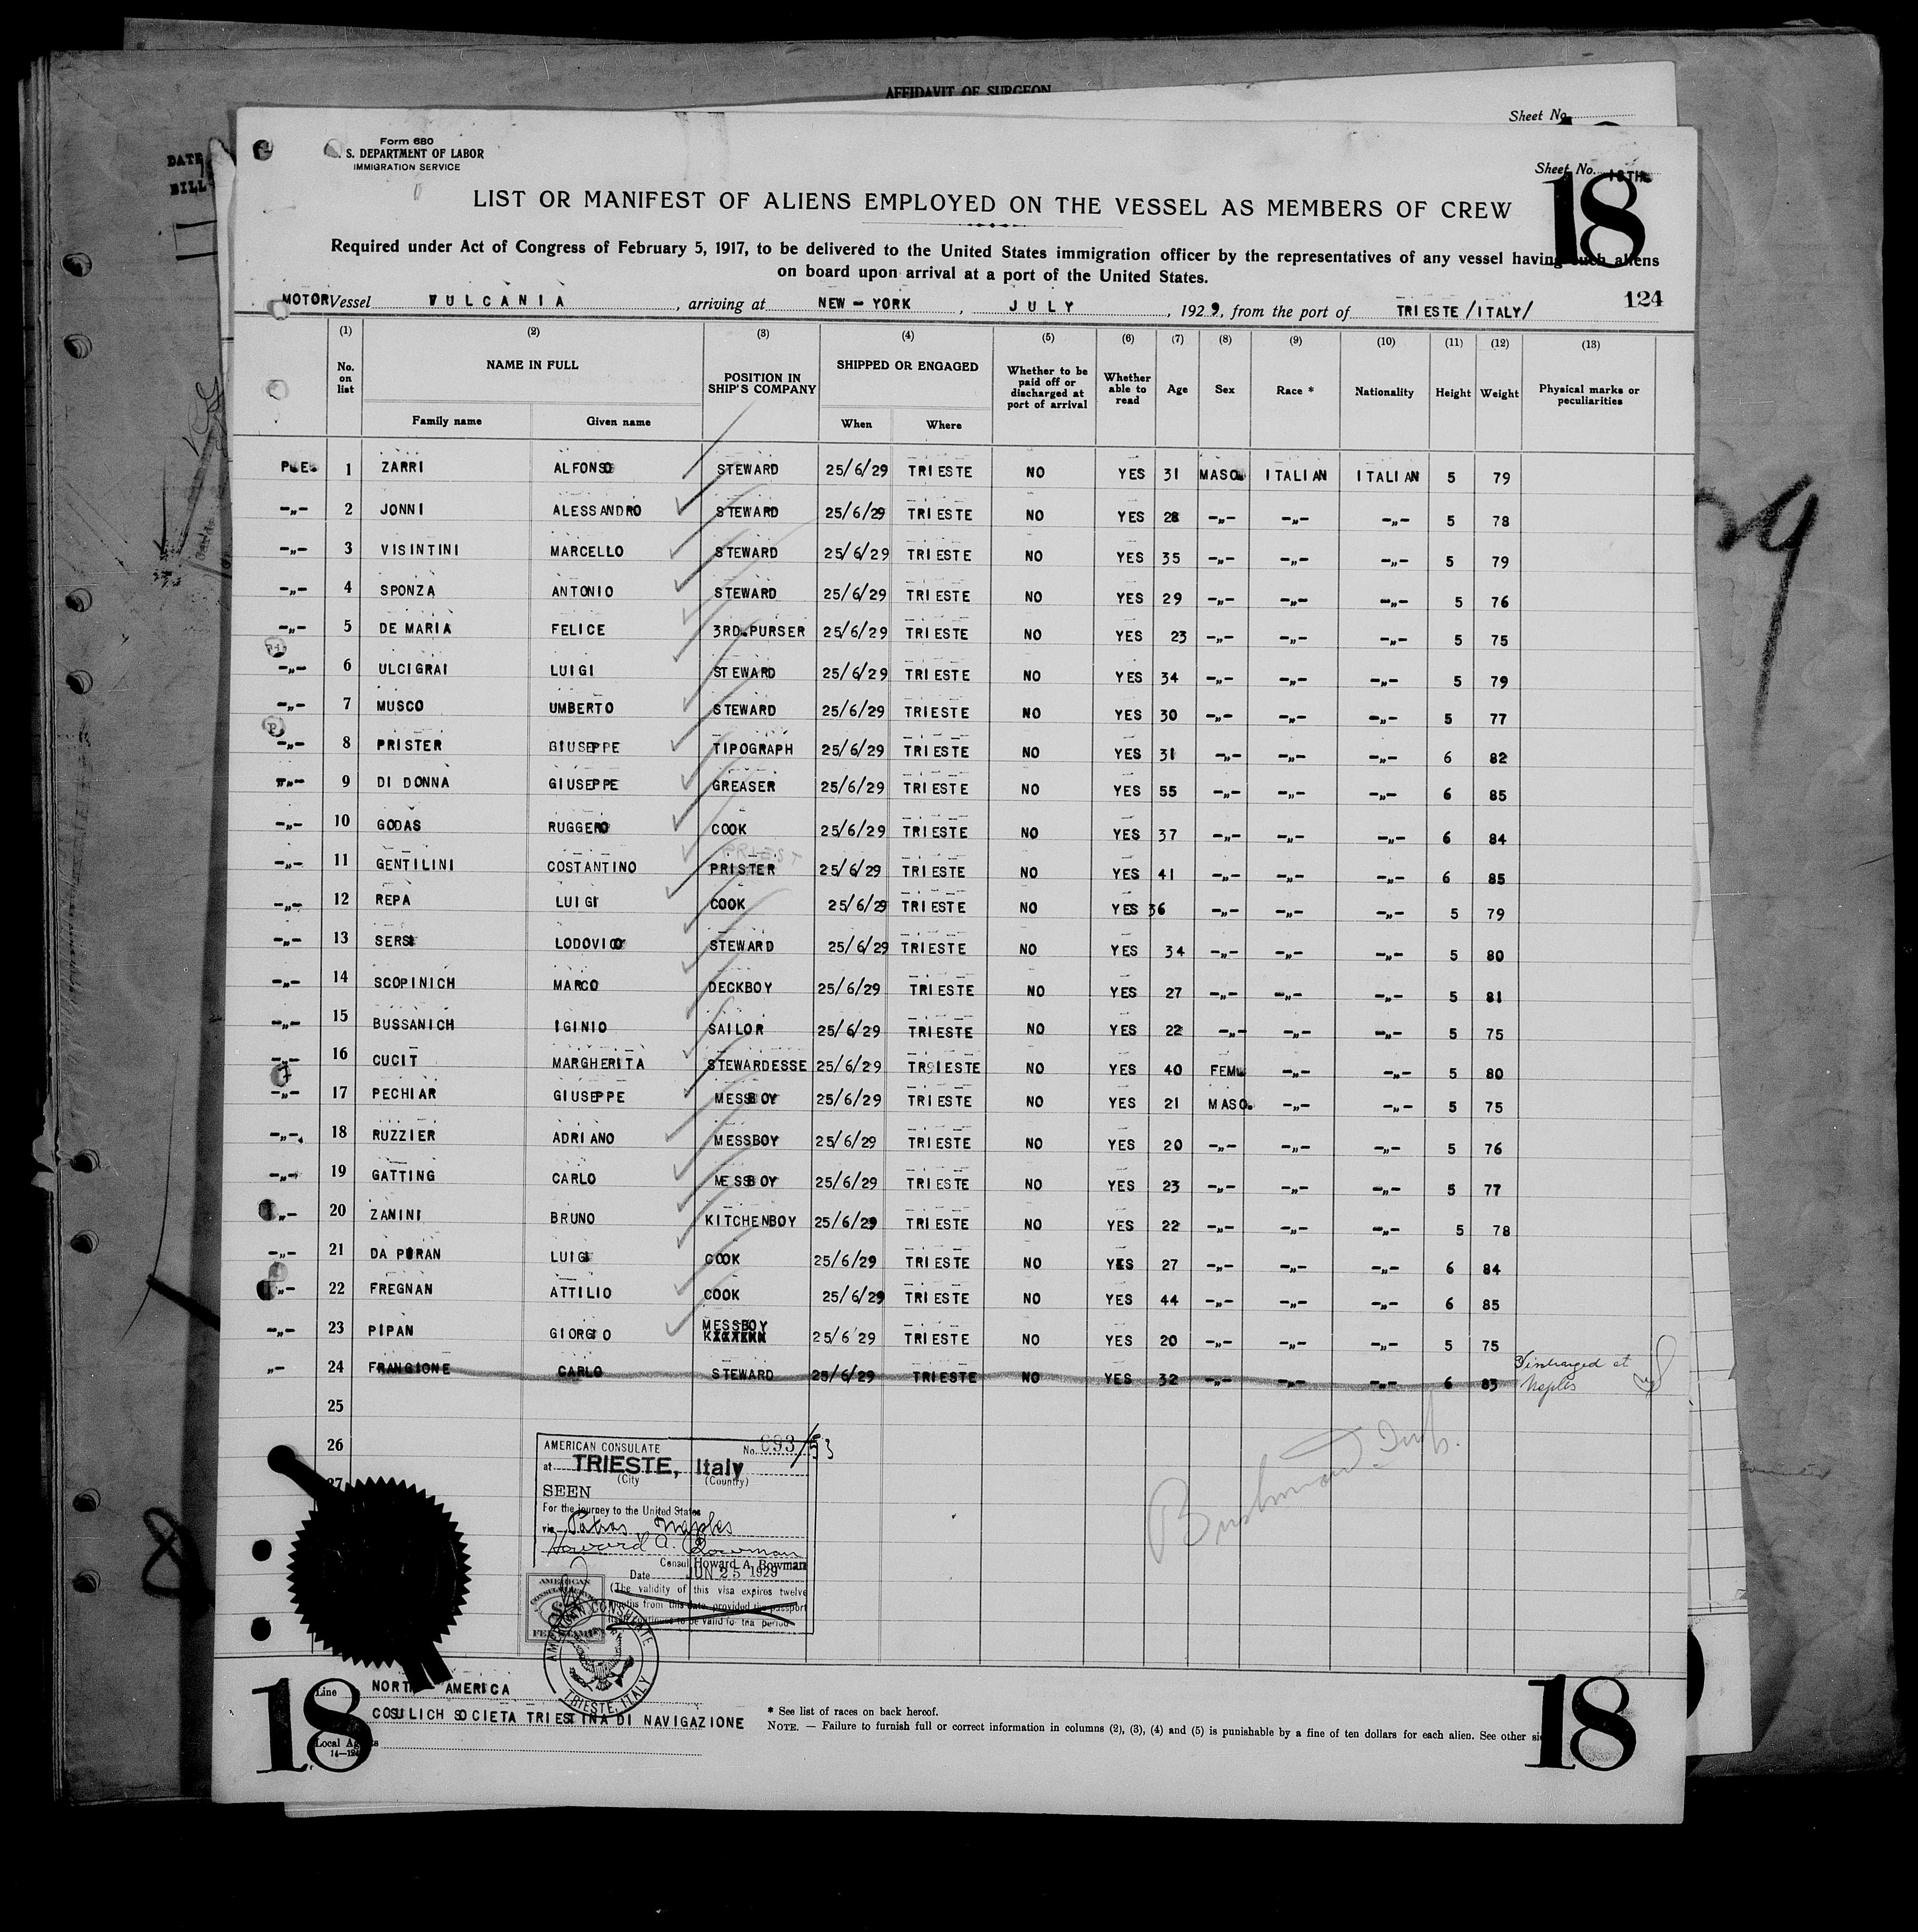 AFFIDAVIT OF SURGEON
Sheet No.
DATE
BILL
Form 680
S. DEPARTMENT OF LABOR
IMMIGRATION SERVICE
Sheet No. 18TH
18
LIST OR MANIFEST OF ALIENS EMPLOYED ON THE VESSEL AS MEMBERS OF CREW
Required under Act of Congress of February 5, 1917, to be delivered to the United States immigration officer by the representatives of any vessel having such aliens
on board upon arrival at a port of the United States.
MOTOR Vessel VULCANIA, arriving at NEW-YORK, JULY, 1929, from the port of TRIESTE /ITALY/
124
(1) (2) (3) (4) (5) (6) (7) (8) (9) (10) (11) (12) (13)
No. on list NAME IN FULL POSITION IN SHIP'S COMPANY SHIPPED OR ENGAGED Whether to be paid off or discharged at port of arrival Whether able to read Age Sex Race * Nationality Height Weight Physical marks or peculiarities
Family name Given name When Where
P.E. 1 ZARRI ALFONSO STEWARD 25/6/29 TRIESTE NO YES 31 MASC. ITALIAN ITALIAN 5 79
-„- 2 JONNI ALESSANDRO STEWARD 25/6/29 TRIESTE NO YES 28 -„- -„- -„- 5 78
-„- 3 VISINTINI MARCELLO STEWARD 25/6/29 TRIESTE NO YES 35 -„- -„- -„- 5 79
-„- 4 SPONZA ANTONIO STEWARD 25/6/29 TRIESTE NO YES 29 -„- -„- -„- 5 76
-„- 5 DE MARIA FELICE 3RD.PURSER 25/6/29 TRIESTE NO YES 23 -„- -„- -„- 5 75
-„- 6 ULCIGRAI LUIGI STEWARD 25/6/29 TRIESTE NO YES 34 -„- -„- -„- 5 79
-„- 7 MUSCO UMBERTO STEWARD 25/6/29 TRIESTE NO YES 30 -„- -„- -„- 5 77
-„- 8 PRISTER GIUSEPPE TIPOGRAPH 25/6/29 TRIESTE NO YES 31 -„- -„- -„- 6 82
-„- 9 DI DONNA GIUSEPPE GREASER 25/6/29 TRIESTE NO YES 55 -„- -„- -„- 6 85
-„- 10 GODAS RUGGERO COOK 25/6/29 TRIESTE NO YES 37 -„- -„- -„- 6 84
PRIEST
-„- 11 GENTILINI COSTANTINO PRISTER 25/6/29 TRIESTE NO YES 41 -„- -„- -„- 6 85
-„- 12 REPA LUIGI COOK 25/6/29 TRIESTE NO YES 36 -„- -„- -„- 5 79
-„- 13 SERSI LODOVICO STEWARD 25/6/29 TRIESTE NO YES 34 -„- -„- -„- 5 80
-„- 14 SCOPINICH MARCO DECKBOY 25/6/29 TRIESTE NO YES 27 -„- -„- -„- 5 81
-„- 15 BUSSANICH IGINIO SAILOR 25/6/29 TRIESTE NO YES 22 -„- -„- -„- 5 75
-„- 16 CUCIT MARGHERITA STEWARDESSE 25/6/29 TRIESTE NO YES 40 FEM. -„- -„- 5 80
-„- 17 PECHIAR GIUSEPPE MESSBOY 25/6/29 TRIESTE NO YES 21 MASC. -„- -„- 5 75
-„- 18 RUZZIER ADRIANO MESSBOY 25/6/29 TRIESTE NO YES 20 -„- -„- -„- 5 76
-„- 19 GATTING CARLO MESSBOY 25/6/29 TRIESTE NO YES 23 -„- -„- -„- 5 77
„- 20 ZANINI BRUNO KITCHENBOY 25/6/29 TRIESTE NO YES 22 -„- -„- -„- 5 78
-„- 21 DA PORAN LUIGI COOK 25/6/29 TRIESTE NO YES 27 -„- -„- -„- 6 84
„- 22 FREGNAN ATTILIO COOK 25/6/29 TRIESTE NO YES 44 -„- -„- -„- 6 85
-„- 23 PIPAN GIORGIO MESSBOY 25/6/29 TRIESTE NO YES 20 -„- -„- -„- 5 75
„- 24 FRANGIONE CARLO STEWARD 25/6/29 TRIESTE NO YES 32 -„- -„- -„- 6 83 Discharged at Naples
25
26
27
AMERICAN CONSULATE No. 693/53
at TRIESTE, Italy
(City (Country)
SEEN
For the journey to the United States
via Patras Naples
Howard A. Bowman
Consul Howard A. Bowman
Date JUN 25 1929
(The validity of this visa expires twelve
months from this date, provided the passport
continues to be valid for tha period
AMERICAN CONSULAR SERVICE
FEE STAMP
AMERICAN CONSULATE
TRIESTE, ITALY
18
Line NORTH AMERICA
COSULICH SOCIETA TRIESTINA DI NAVIGAZIONE
Local Agents
* See list of races on back hereof.
NOTE. — Failure to furnish full or correct information in columns (2), (3), (4) and (5) is punishable by a fine of ten dollars for each alien. See other
18